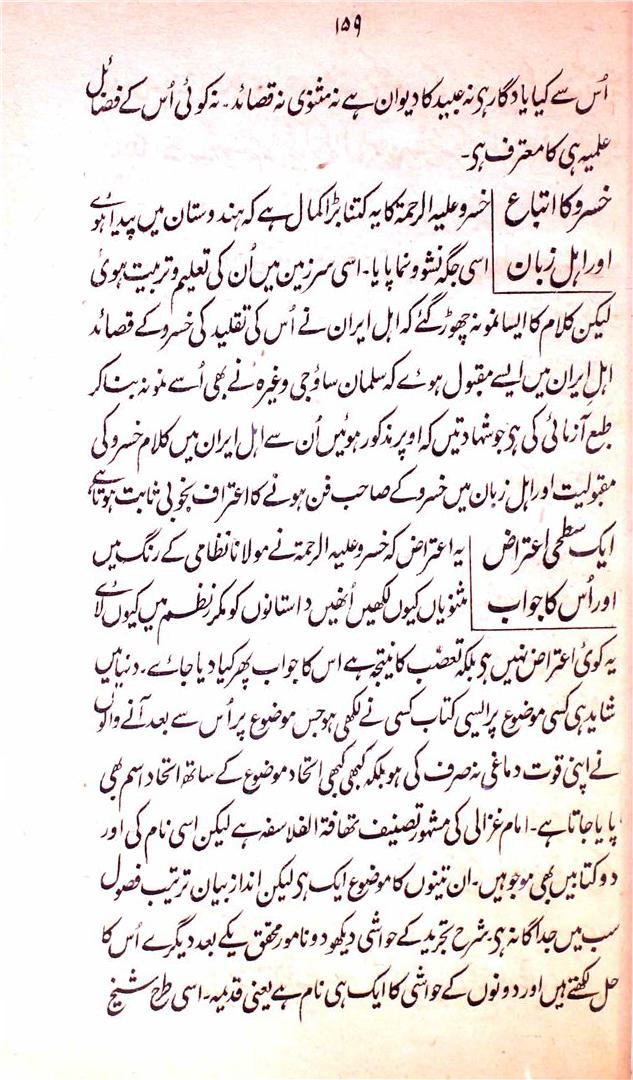 ۱۵۹
اُس سے کیا یادگار ہی نہ عبید کا دیوان ہے نہ مثنوی نہ قصائد۔ نہ کوئی اُس کے فضائل
علمیہ ہی کا معترف ہی۔
خسرو کا اتباع خسرو علیہ الرحمۃ کا یہ کتنا بڑا کمال ہے کہ ہندوستان میں پیدا ہوے
اور اہل زبان اسی جگہ نشوونما پایا۔ اسی سرزمین میں اُن کی تعلیم و تربیت ہوئی
لیکن کلام کا ایسا نمونہ چھوڑ گئے کہ اہل ایران نے اُس کی تقلید کی خسرو کے قصائد
اہلِ ایران میں ایسے مقبول ہوے کہ سلمان ساؤجی وغیرہ نے بھی اُسے نمونہ بنا کر
طبع آزمائی کی ہی جو شہادتیں کہ اوپر مذکور ہوئیں اُن سے اہل ایران میں کلام خسرو کی
مقبولیت اور اہل زبان میں خسرو کے صاحب فن ہونے کا اعتراف بخوبی ثابت ہوتا ہے
ایک سطحی اعتراض یہ اعتراض کہ خسرو علیہ الرحمۃ نے مولانا نظامی کے رنگ میں
اور اُس کا جواب مثنویاں کیوں لکھیں اُنھیں داستانوں کو مکرر نظم میں کیوں لائے
یہ کوئی اعتراض نہیں ہی بلکہ تعصّب کا نتیجہ ہے اس کا جواب پھر کیا دیا جائے۔ دنیا میں
شاید ہی کسی موضوع پر ایسی کتاب کسی نے لکھی ہو جس موضوع پر اُس سے بعد آنے والوں
نے اپنی قوت دماغی نہ صرف کی ہو بلکہ کبھی کبھی اتحاد موضوع کے ساتھ اتحاد اسم بھی
پایا جاتا ہے۔ امام غزالی کی مشہور تصنیف تھافۃ الفلاسفہ ہے لیکن اسی نام کی اور
دو کتابیں بھی موجو ہیں۔ ان تینوں کا موضوع ایک ہی لیکن انداز بیان ترتیب فصول
سب میں جداگانہ ہی شرح تجرید کے حواشی دیکھو دو نامور محقق یکے بعد دیگرے اُس کا
حل لکھتے ہیں اور دونوں کے حواشی کا ایک ہی نام ہے یعنی قدیمہ۔ اسی طرح شیخ